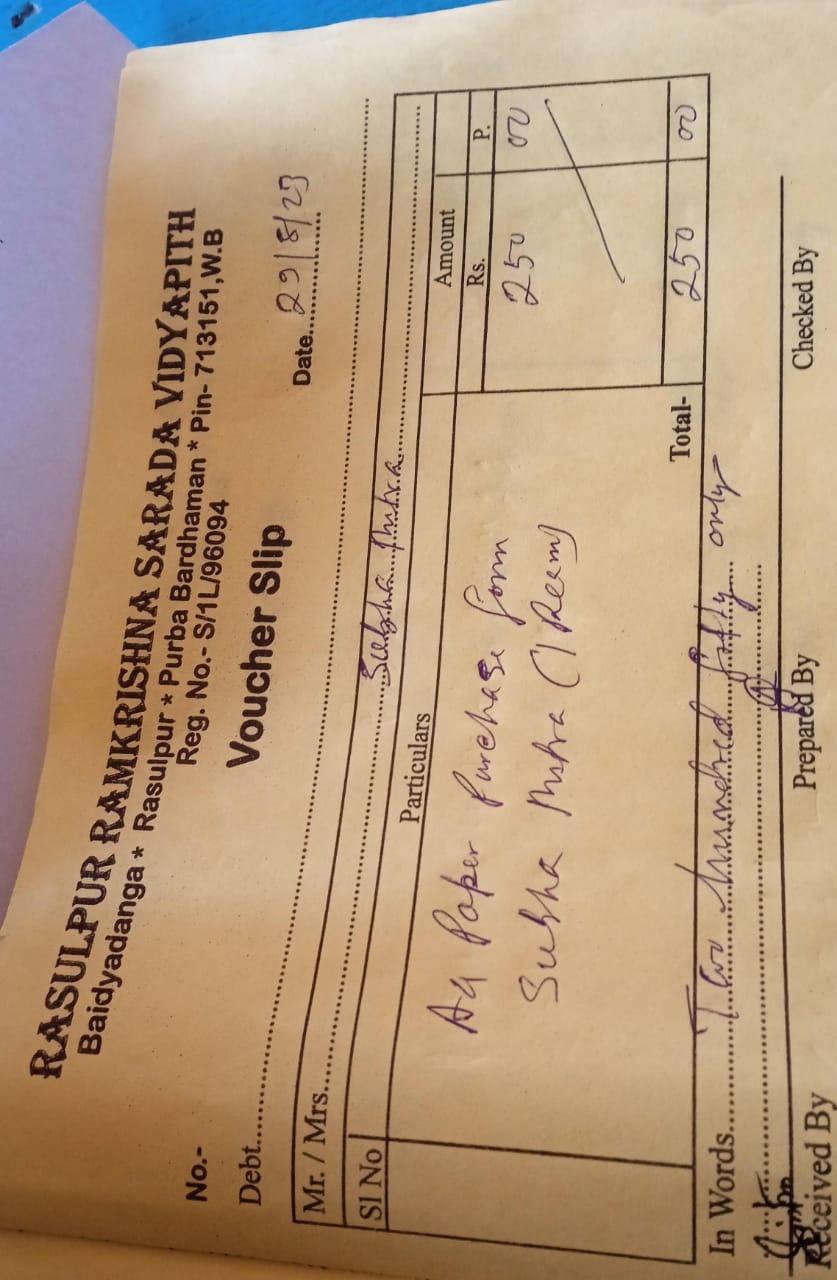 RASULPUR RAMKRISHNA SARADA VIDYAPITH
Baidyadanga * Rasulpur * Purba Bardhaman * Pin- 713151,W.B
Reg. No.- S/1L/96094
No.-
Voucher Slip
Debt.......... Date.. 29/8/23
Mr. / Mrs.......... Subha Mitra
Sl No Particulars Amount
Rs. P.
A4 Paper Purchase form 250 00
Subha Mitra (1 Ream)
Total- 250 00
In Words.......... Two hundred fifty only
Received By Prepared By Checked By